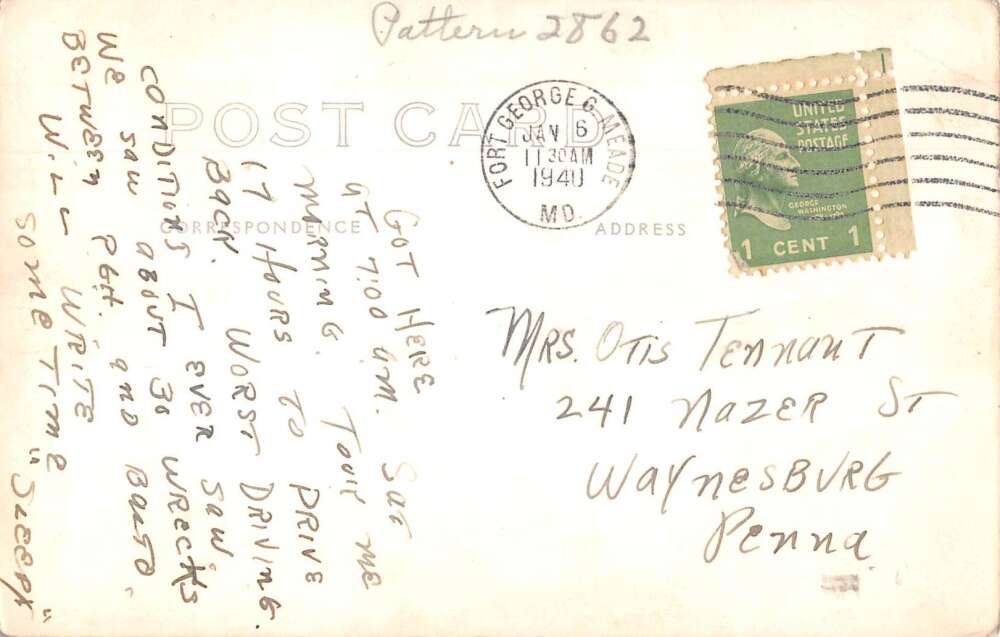 Pattern 2862
POST CARD
FORT GEORGE G. MEADE
JAN 6
11 30 AM
1940
MD.
UNITED
STATES
POSTAGE
GEORGE
WASHINGTON
1 CENT 1
CORRESPONDENCE
ADDRESS
GOT HERE SAT
AT 7:00 A.M.
MIRNING. TOUK ME
17 HOURS TO DRIVE
BACK. WORST DRIVING
CONDITIONS I EVER SAW.
WE SAW ABOUT 30 WRECKS
BETWEEN PGH. AND BALTO.
WRITE
SOMETIME "SLEEPY"
MRS. OTIS TENNANT
241 NAZER ST
WAYNESBURG
Penna